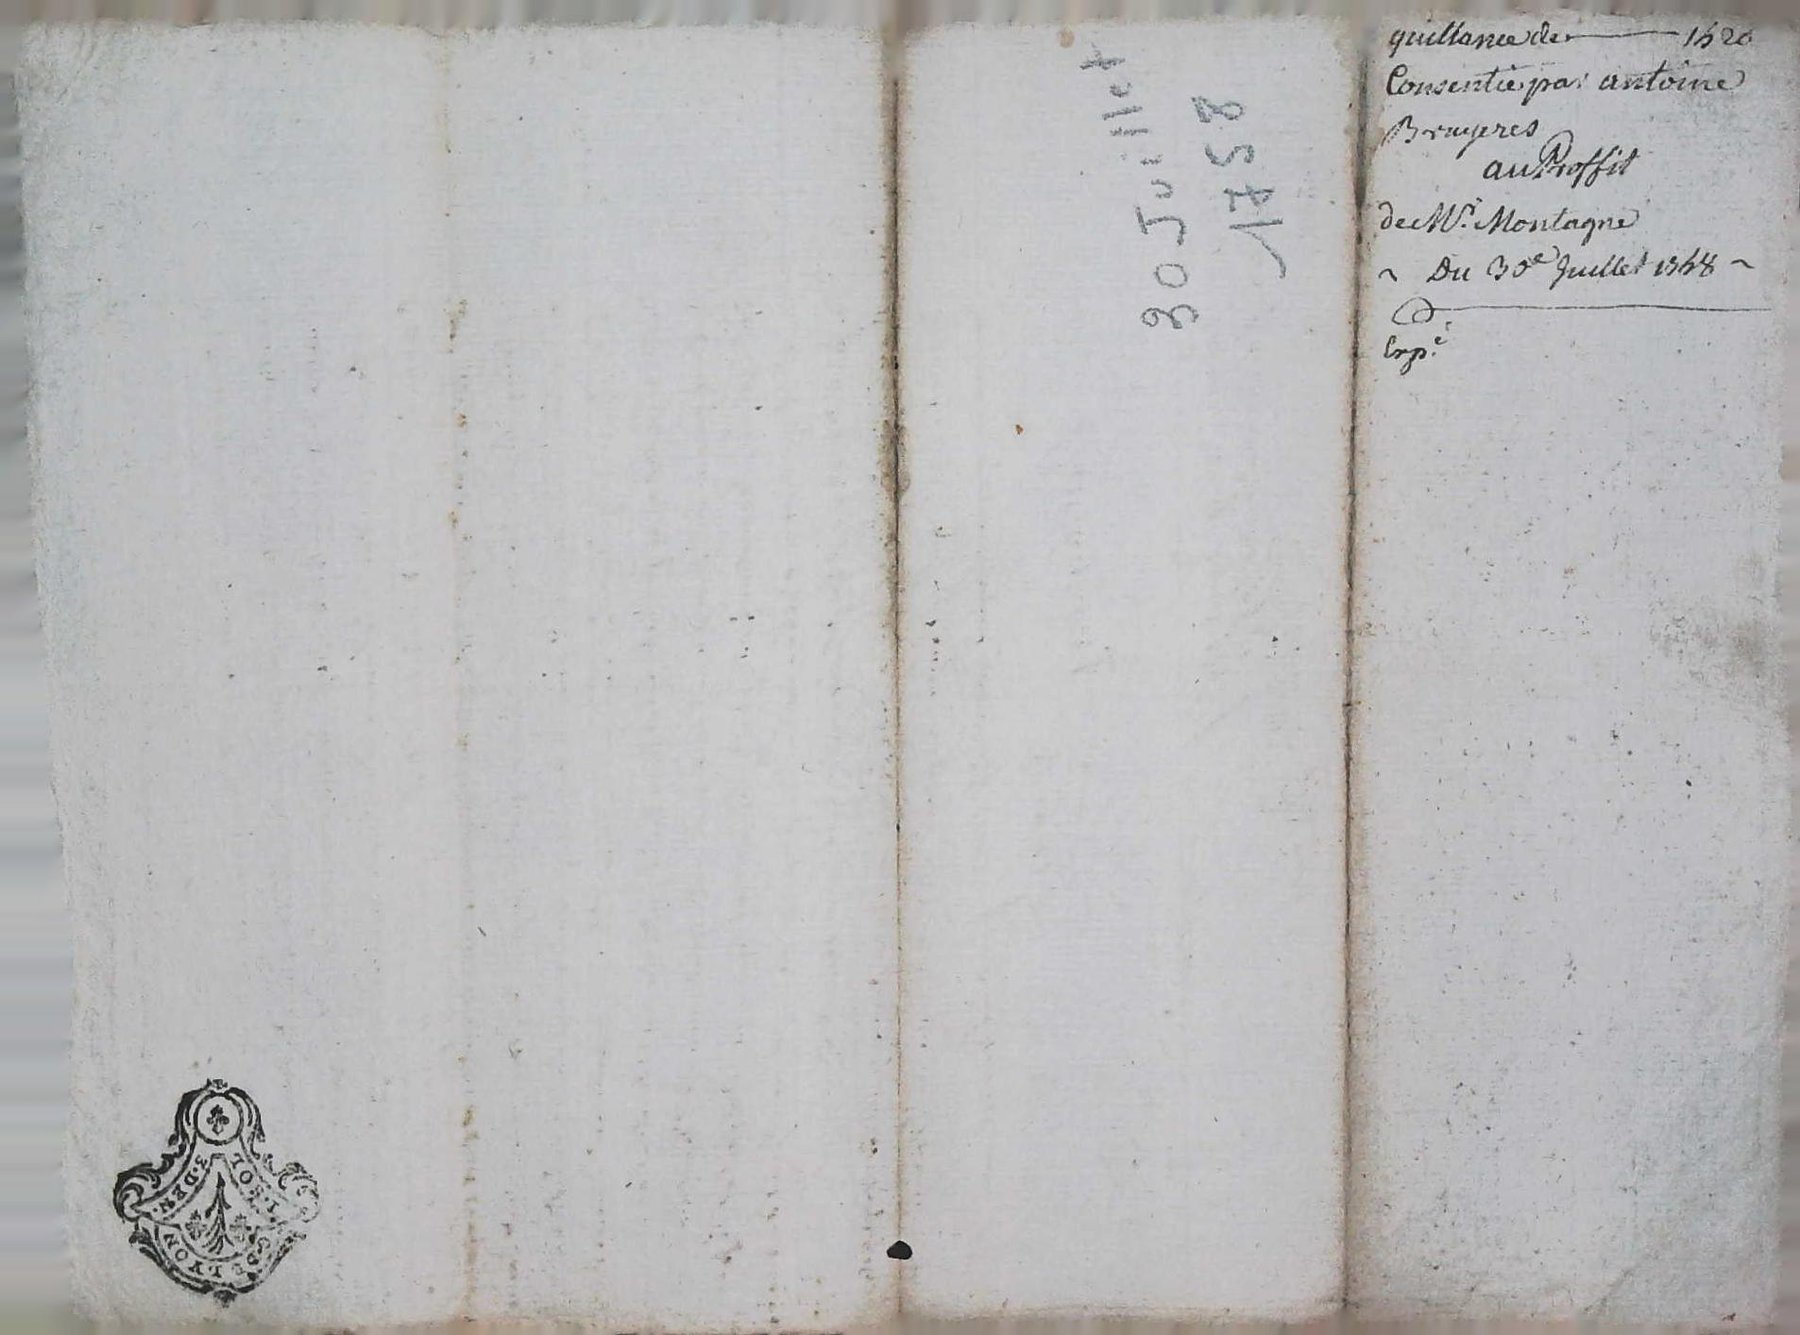 quittance de 1420
Consentie par antoine
Bruyeres
au Proffit
de Mr. Montagne
~ Du 30e Juillet 1758 ~
Exp.é
30 Juillet
1758
3. DEN.
G. DE LYON